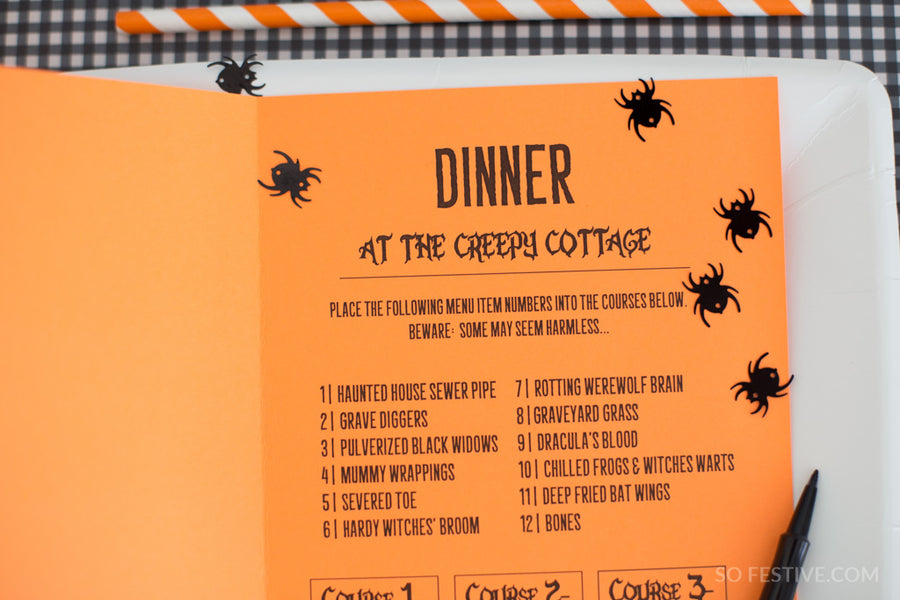 DINNER
AT THE CREEPY COTTAGE
PLACE THE FOLLOWING MENU ITEM NUMBERS INTO THE COURSES BELOW.
BEWARE: SOME MAY SEEM HARMLESS...
1| HAUNTED HOUSE SEWER PIPE
2| GRAVE DIGGERS
3| PULVERIZED BLACK WIDOWS
4| MUMMY WRAPPINGS
5| SEVERED TOE
6| HARDY WITCHES' BROOM
7| ROTTING WEREWOLF BRAIN
8| GRAVEYARD GRASS
9| DRACULA'S BLOOD
10| CHILLED FROGS & WITCHES WARTS
11| DEEP FRIED BAT WINGS
12| BONES
COURSE 1
COURSE 2
COURSE 3
SO FESTIVE.COM